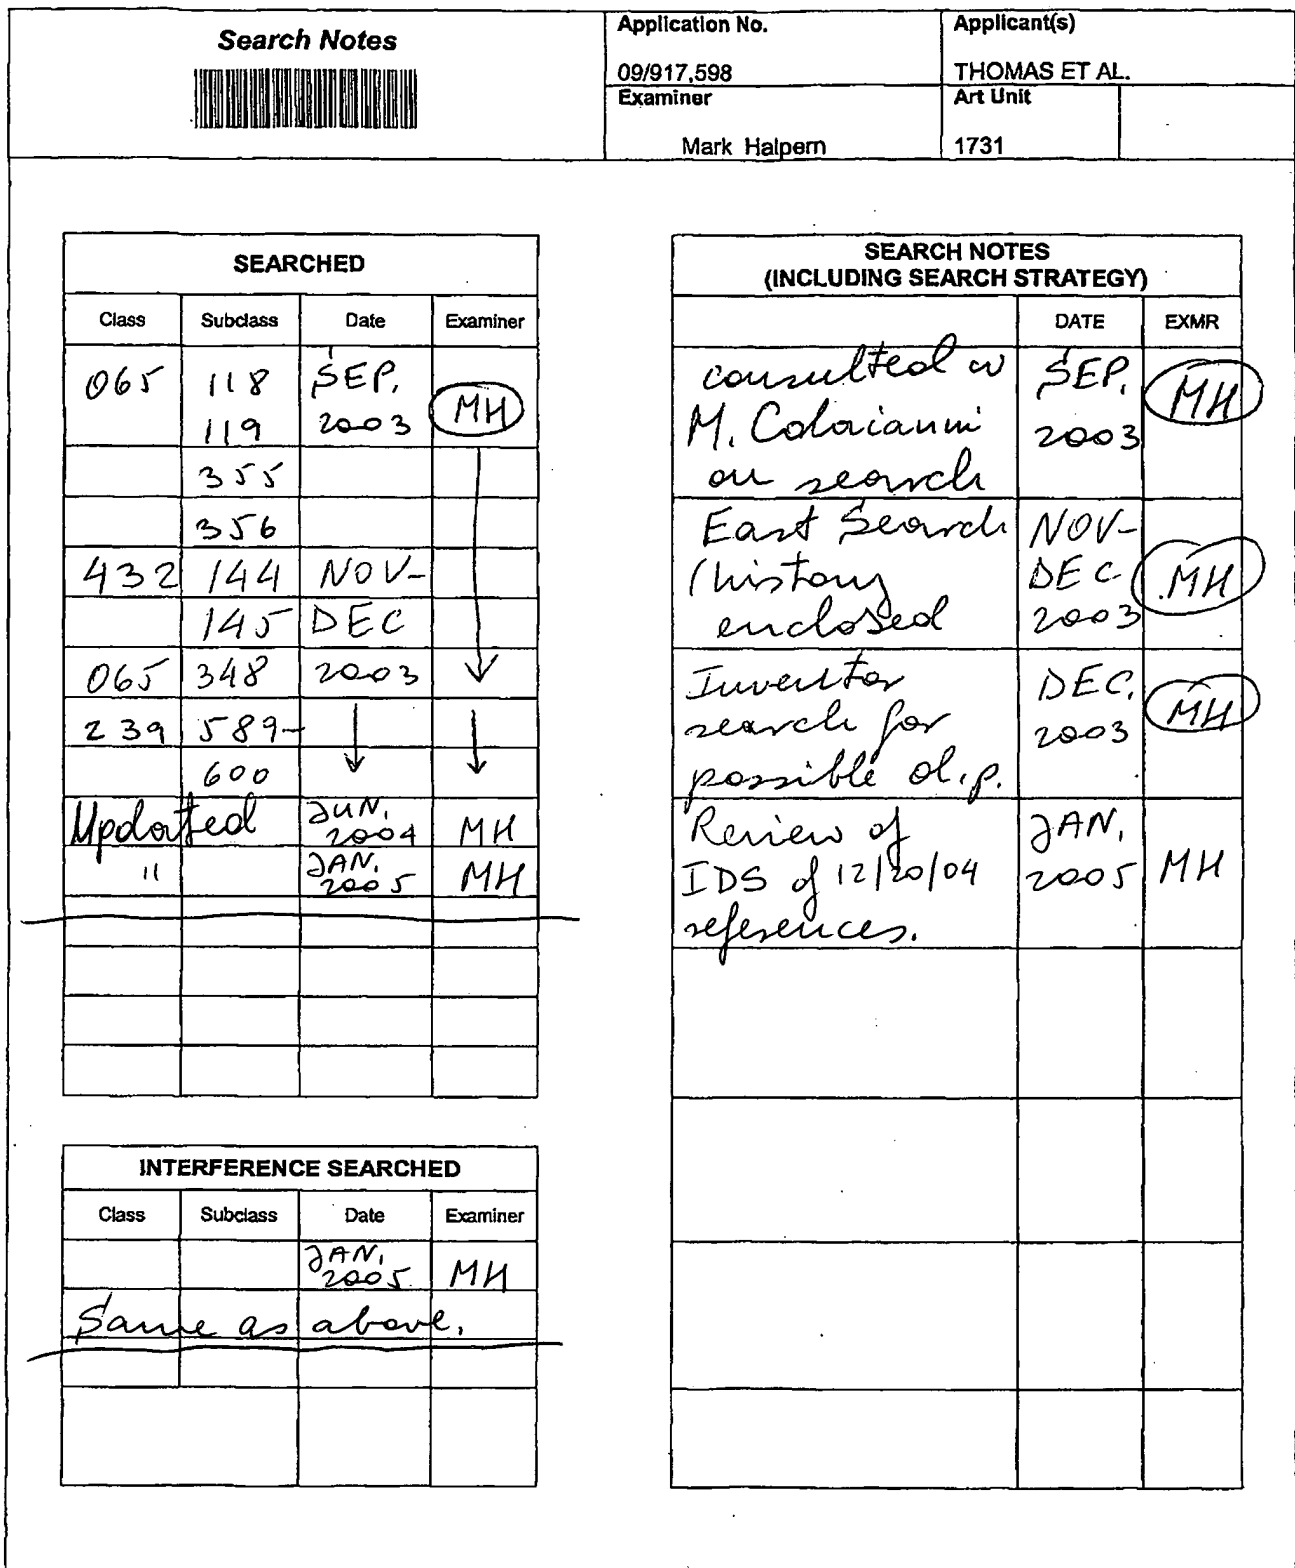 Search Notes
Application No.
09/917,598
Applicant(s)
THOMAS ET AL.
Examiner
Mark Halpern
Art Unit
1731
SEARCHED
Class Subclass Date Examiner
065 118 SEP. MH
119 2003
355
356
432 144 NOV-
145 DEC
065 348 2003
239 589-
600
Updated JUN. 2004 MH
" JAN. 2005 MH
INTERFERENCE SEARCHED
Class Subclass Date Examiner
JAN. 2005 MH
Same as above.
SEARCH NOTES
(INCLUDING SEARCH STRATEGY)
DATE EXMR
consulted w SEP. MH
M. Colaianni 2003
on search
East Search NOV-
(history DEC MH
enclosed 2003
Inventor DEC. MH
search for 2003
possible d.p.
Review of JAN.
IDS of 12/20/04 2005 MH
references.